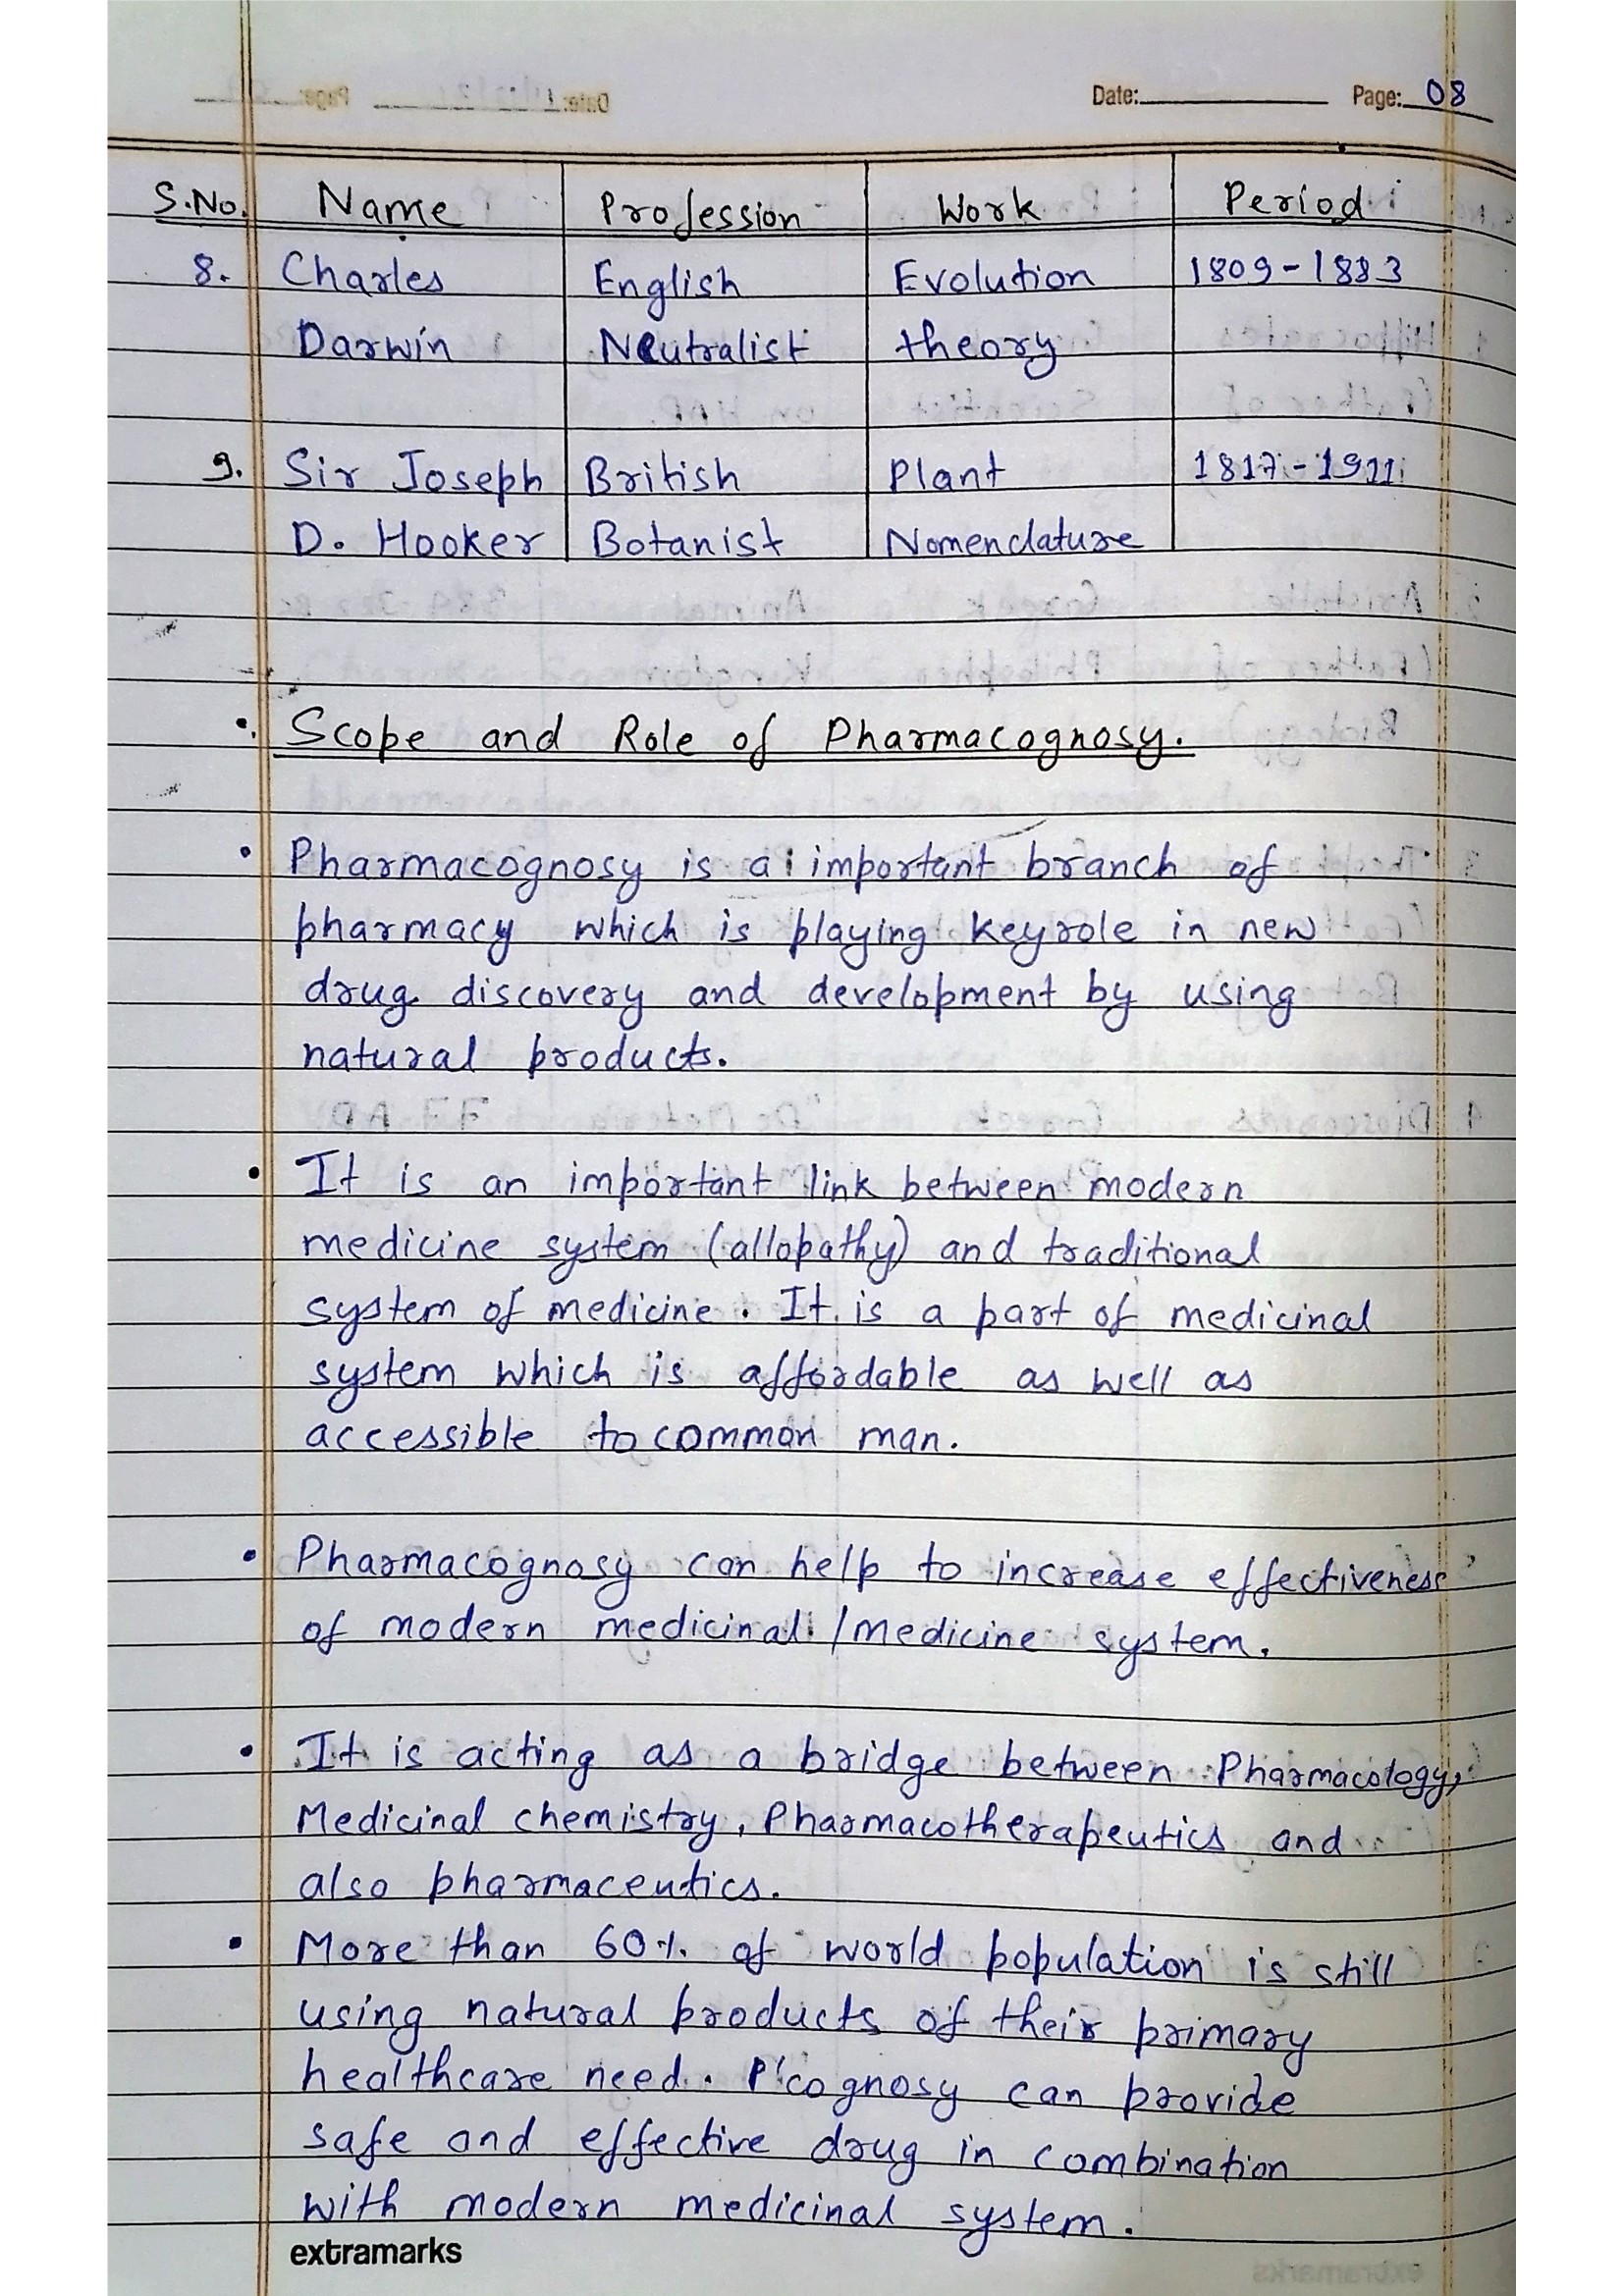 Date: Page: 08
S.No. Name Profession Work Period
8. Charles English Evolution 1809-1883
Darwin Neutralist theory
9. Sir Joseph British Plant 1817-1911
D. Hooker Botanist Nomenclature
Scope and Role of Pharmacognosy.
• Pharmacognosy is a important branch of
pharmacy which is playing keyrole in new
drug discovery and development by using
natural products.
• It is an important link between modern
medicine system (allopathy) and traditional
system of medicine. It is a part of medicinal
system which is affordable as well as
accessible to common man.
• Pharmacognosy can help to increase effectiveness
of modern medicinal /medicine system.
• It is acting as a bridge between Pharmacology,
Medicinal chemistry, Pharmacotherapeutics and
also pharmaceutics.
• More than 60% of world population is still
using natural products of their primary
healthcare need. P'cognosy can provide
safe and effective drug in combination
with modern medicinal system.
extramarks